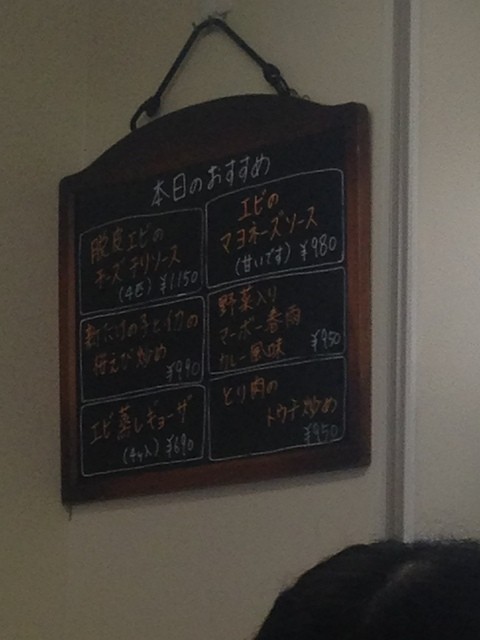 本日のおすすめ
脱皮エビの
チーズチリソース
(4匹) ¥1150
エビの
マヨネーズソース
(甘いです) ¥980
新たけの子とイカの
桜えび炒め
¥990
野菜入り
マーボー春雨
カレー風味 ¥950
エビ蒸しギョーザ
(4ヶ入) ¥690
とり肉の
トウチ炒め
¥950